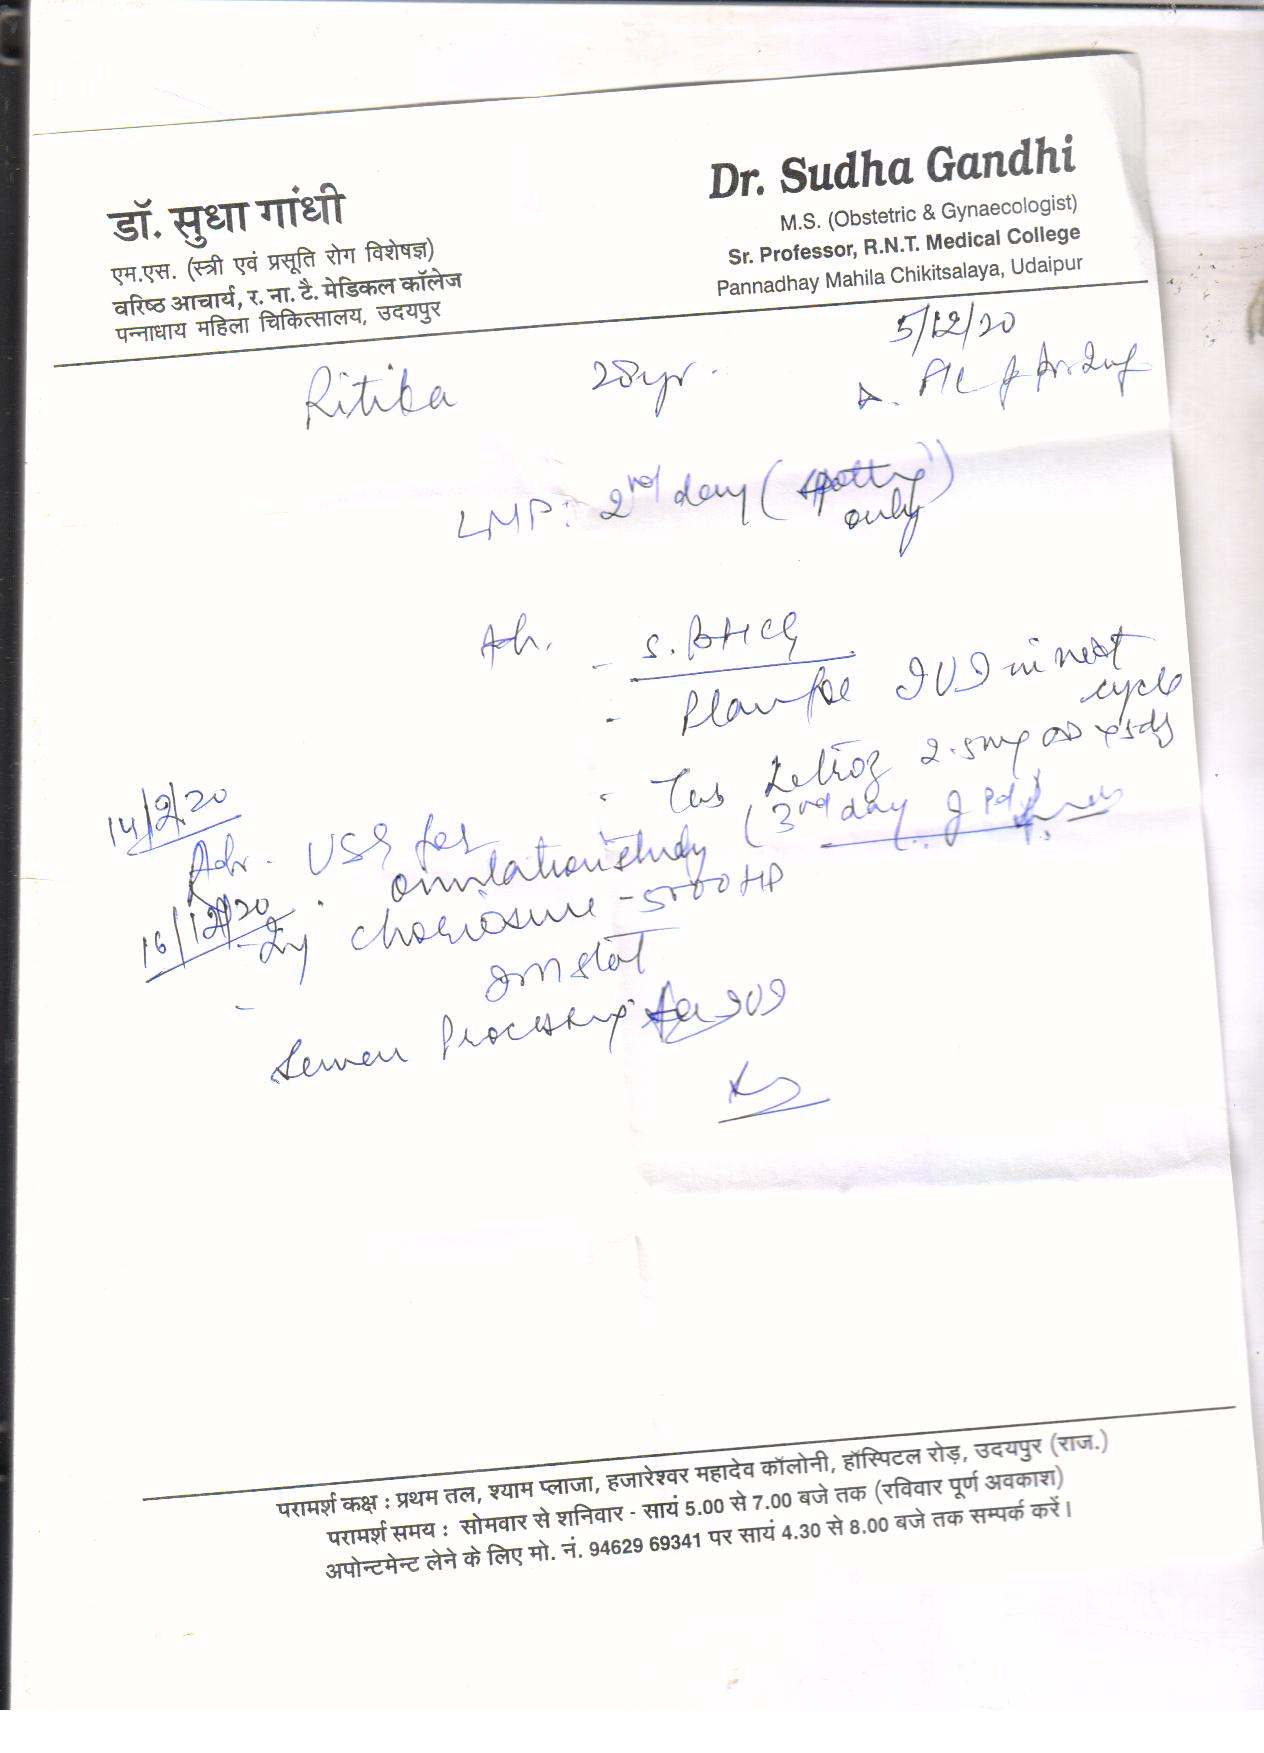 डॉ. सुधा गांधी
एम.एस. (स्त्री एवं प्रसूति रोग विशेषज्ञ)
वरिष्ठ आचार्य, र. ना. टै. मेडिकल कॉलेज
पन्नाधाय महिला चिकित्सालय, उदयपुर
Dr. Sudha Gandhi
M.S. (Obstetric & Gynaecologist)
Sr. Professor, R.N.T. Medical College
Pannadhay Mahila Chikitsalaya, Udaipur
5/12/20
Ritika 28yr.
LMP: 2nd day (spotting
only)
Adv. - S. BHCG
- Plan for IUI in next
cycle
- Tab Letroz 2.5mg OD x 5days
(3rd day of
14/12/20
Adv. USG for
ovulation study
16/12/20
- Inj Choriosure - 5000
IM stat
- Semen Processing for IUI
परामर्श कक्ष : प्रथम तल, श्याम प्लाजा, हजारेश्वर महादेव कॉलोनी, हॉस्पिटल रोड़, उदयपुर (राज.)
परामर्श समय : सोमवार से शनिवार - सायं 5.00 से 7.00 बजे तक (रविवार पूर्ण अवकाश)
अपोन्टमेन्ट लेने के लिए मो. नं. 94629 69341 पर सायं 4.30 से 8.00 बजे तक सम्पर्क करें।